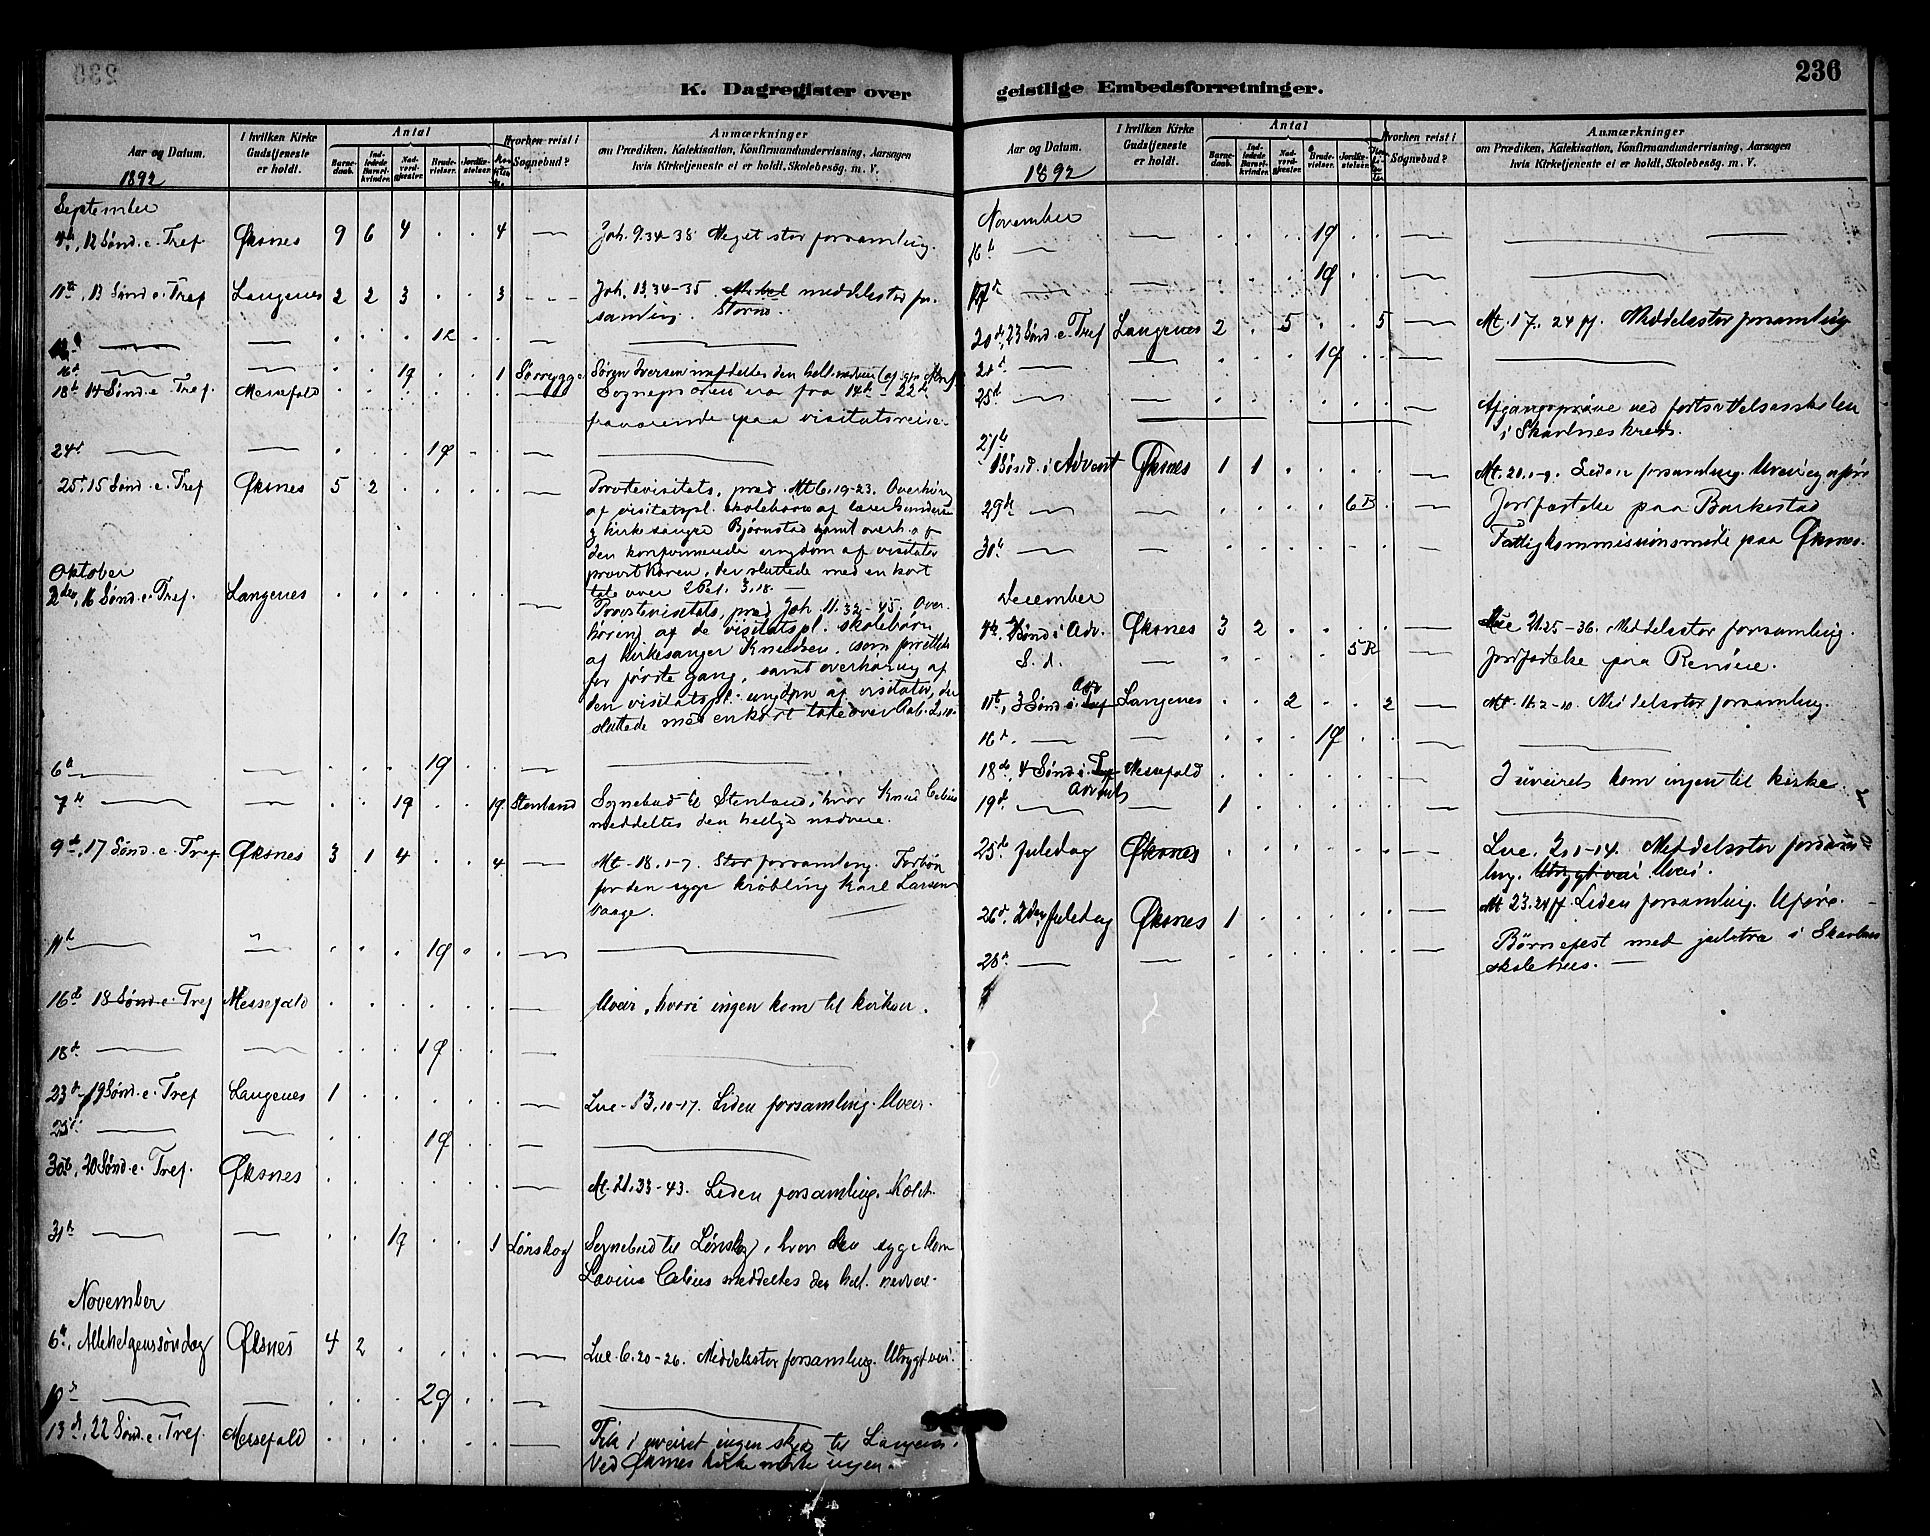 K. Dagregister over
Aar og Datum.
1892
I hvilken Kirke Gudstjeneste er holdt.
Antal
Barnedaab.
Indledede Barselkvinder.
Nadverdgjester.
Brudevielser.
Jordfæstelser.
Hvorhen reist i Sognebud?
Anmærkninger
om Prædiken, Katekisation, Konfirmandundervisning, Aarsagen
hvis Kirketjeneste ei er holdt, Skolebesøg, m. V.
September
4de, 12 Sønd. e. Tref. Øksnes 9 6 4 . . 4 — Joh. 9.34-38. Meget stor forsamling.
11te, 13 Sønd. e. Tref Langenes 2 2 3 . . 3 - - - Joh. 13.34-35. meddelsstor for-
samling.
— — . . . 12 . . —
16d — . . 19 . . 1 Søren Iversen meddeltes den hell. nadver
18de 14 Sønd. e. Tref. Messefald . . . . . . — Sognepresten var fra 14de - 22de
fraværende paa visitatsreise.
24d — — . . . 19 . . —
25d 15 Sønd. e. Tref Øksnes 5 2 . . . . — Provstevisitats, præd. Mt 6.19-23. Overhøring
af visitatspl. skolebørn af lærer
kirkesanger Bjørnstad samt overh. af
den konfirmerede ungdom af visitator
provst Køren, der sluttede med en kort
tale over 2 Pet. 3.18.
Oktober
2den, 16 Sønd. e. Tref. Langenes . . . . . . — Provstevisitats, præd. Joh. 11.32-45. Over-
høring af de visitatspl. skolebørn
af kirkesanger Knudsen,
for første gang, samt overhøring af
den visitatspl. ungdom af visitator, der
sluttede med en kort tale over
6d — — . . . 19 . . —
7de — — . . 19 . . 19 Stenland Sognebud til Stenland, hvor Knud
meddeltes den hellige nadvere.
9de, 17 Sønd. e. Tref. Øksnes 3 1 4 . . 4 — Mt. 18.1-7. Stor forsamling. Forbøn
for den syge krøbling Karl Larsen
Vaage.
11d — " . . . 19 . . —
16de 18 Sønd. e. Tref Messefald . . . . . . — Uveir, hvori ingen kom til kirken.
18d — — . . . 19 . . —
23d 19 Sønd. e. Tref Langenes 1 . . . . . — Luc. 13.10-17. Liden forsamling. Uveir.
25d — — . . . 19 . . —
30d, 20 Sønd. e. Tref. Øksnes . . . . . . — Mt. 21.33-43. Liden forsamling. Koldt.
31d — — . . 19 . . 1 Lønskog Sognebud til Lønskog, hvor den syge
meddeltes den hell. nadver.
November
6d, Allehelgenssøndag Øksnes 4 2 . . . . — Luc. 6.20-26. Middelsstor forsamling. Utrygt veir.
10d — — . . . 29 . . —
13d, 22 Sønd. e. Tref. Messefald . . . . . . — Fik i uveiret ingen skyds til Langenes.
Ved Øksnes kirke mødte ingen.
geistlige Embedsforretninger.
236
Aar og Datum.
1892
I hvilken Kirke Gudstjeneste er holdt.
Antal
Barnedaab.
Indledede Barselkvinder.
Nadverdgjester.
Brudevielser.
Jordfæstelser.
Hvorhen reist i Sognebud?
Anmærkninger
om Prædiken, Katekisation, Konfirmandundervisning, Aarsagen
hvis Kirketjeneste ei er holdt, Skolebesøg, m. V.
November
16d — — . . . 19 . . —
17d — — . . . 19 . . —
20d, 23 Sønd. e. Tref Langenes 2 . 5 . . 5 — Mt. 17.24 ff. Middelsstor forsamling
21d — — . . . 19 . . —
25d — . . . . . . — Afgangsprøve ved fortsættelsesskolen
i Skarlneskreds.
27de
1 Sønd. i Advent Øksnes 1 1 . . . . — Mt. 21.1-9. Liden forsamling.
29de — — . . . . 6B . — Jordfæstelse paa Barkestad
30d — — . . . . . . — Fattigkommissionsmøde paa Øksnes.
December
4de, 2 Sønd. i Adv. Øksnes 3 2 . . . . — Luc 21.25-36. Middelsstor forsamling.
S. d. — . . . . 5R . — Jordfæstelse paa
11te, 3 Sønd. i Adv Langenes . . 2 . . 2 — Mt. 11.2-10. Middelsstor forsamling.
16d. — — . . . 19 . . —
18de 4 Sønd. i Advent Messefald . . . . . . — I uveiret kom ingen til kirke.
19d — — 1 . . . . . —
25de Juledag Øksnes . . . . . . — Luc. 2.1-14. Middelsstor forsam-
ling. Utrygt veir Uveir.
26d 2den Juledag Øksnes 1 . . . . . — Mt 23.34 ff. Liden forsamling. Uføre.
28d — — . . . . . . — Børnefest med juletræ i Skarlnes
skolehus.